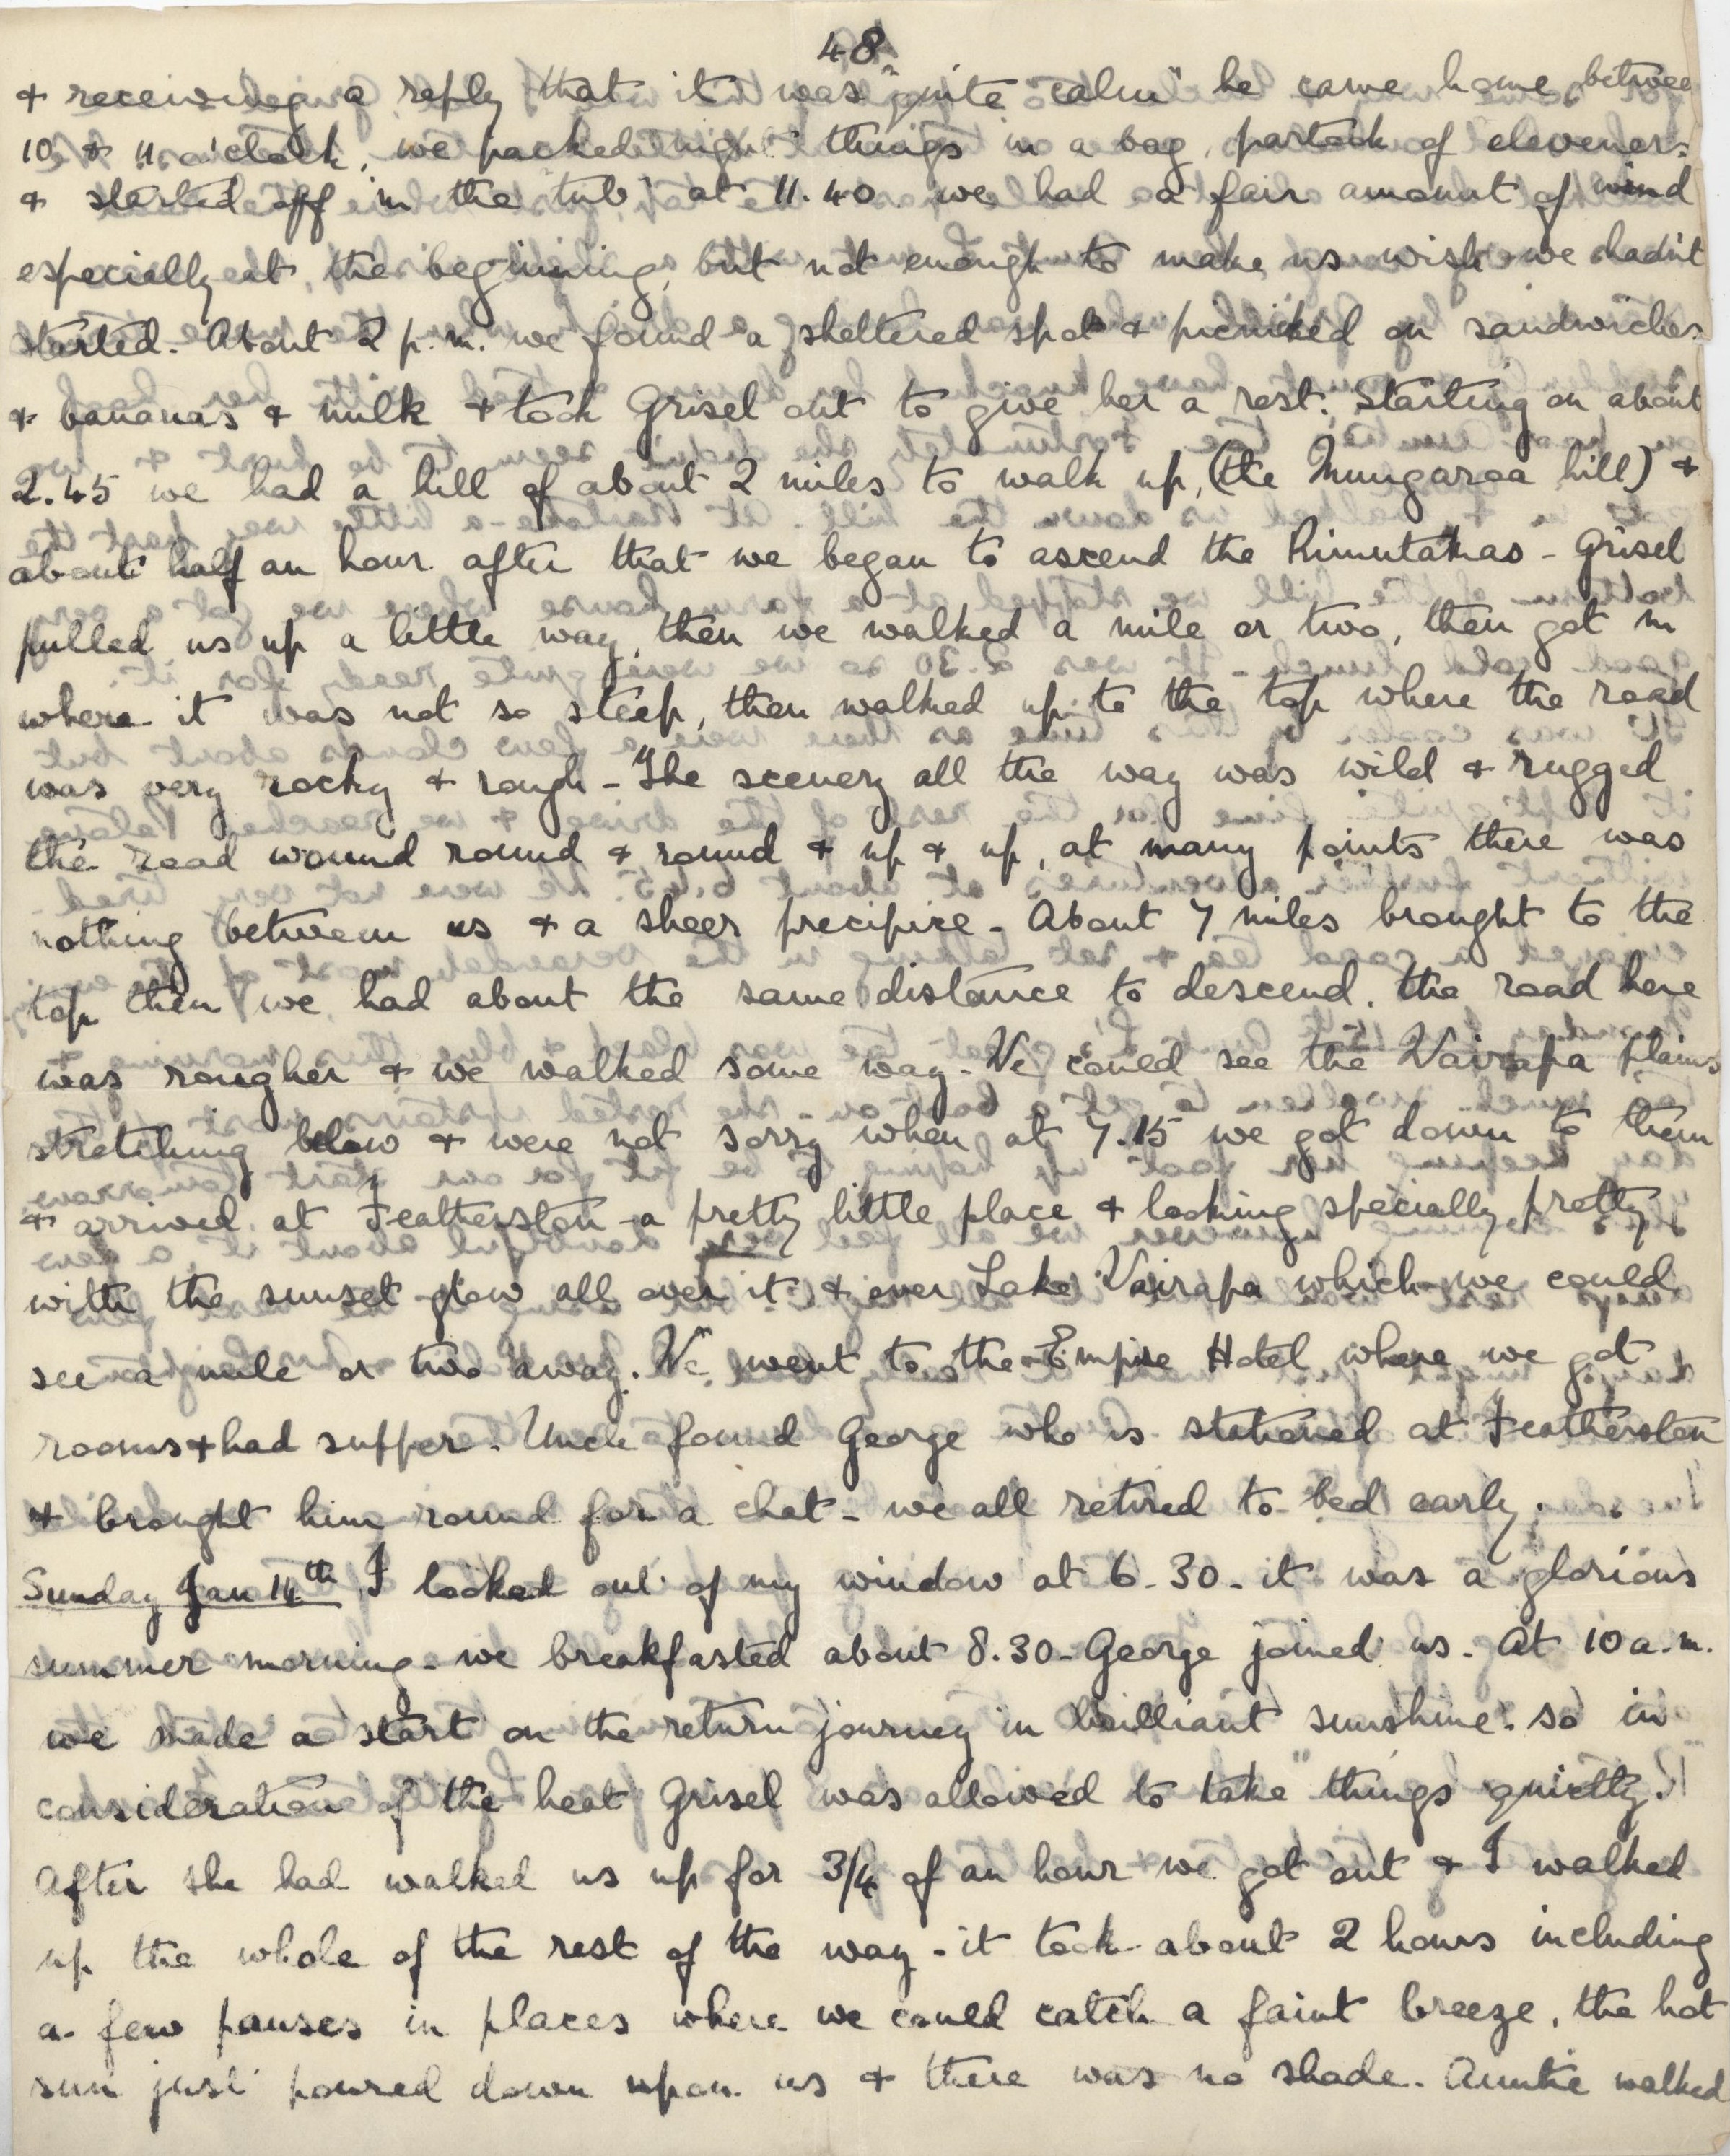 48
& receiving a reply that it was "quite calm" he came home between
10 & 11 o'clock, we packed night things in a bag, partook of elevener:
& started off in the "tub" at 11.40. we had a fair amount of wind
especially at the beginning, but not enough to make us wish we hadn't
started. About 2 p.m. we found a sheltered spot & picnicked on sandwiches
& bananas & milk & took Grisel out to give her a rest. Starting on about
2.45 we had a hill of about 2 miles to walk up, (the Mungaroa hill) &
about half an hour after that we began to ascend the Rimutakas - Grisel
pulled us up a little way, then we walked a mile or two, then got in
where it was not so steep, then walked up to the top where the road
was very rocky & rough - The scenery all the way was wild & rugged
the road wound round & round & up & up, at many points there was
nothing between us & a sheer precipice - About 7 miles brought to the
top then we had about the same distance to descend. the road here
was rougher & we walked some way - We could see the Wairapa plains
stretching below & were not sorry when at 7.15 we got down to them
& arrived at Featherston - a pretty little place & looking specially pretty
with the sunset glow all over it & over Lake Wairapa which we could
see a mile or two away. We went to the Empire Hotel where we got
rooms & had supper. Uncle found George who is stationed at Featherston
& brought him round for a chat - we all retired to bed early.
Sunday Jan 14th I looked out of my window at 6-30 - it was a glorious
summer morning - we breakfasted about 8.30 - George joined us - At 10 a.m.
we made a start on the return journey in brilliant sunshine. so in
consideration of the heat Grisel was allowed to take "things quietly."
After she had walked us up for 3/4 of an hour we got out & I walked
up the whole of the rest of the way - it took about 2 hours including
a few pauses in places where we could catch a faint breeze, the hot
sun just poured down upon us & there was no shade. Auntie walked